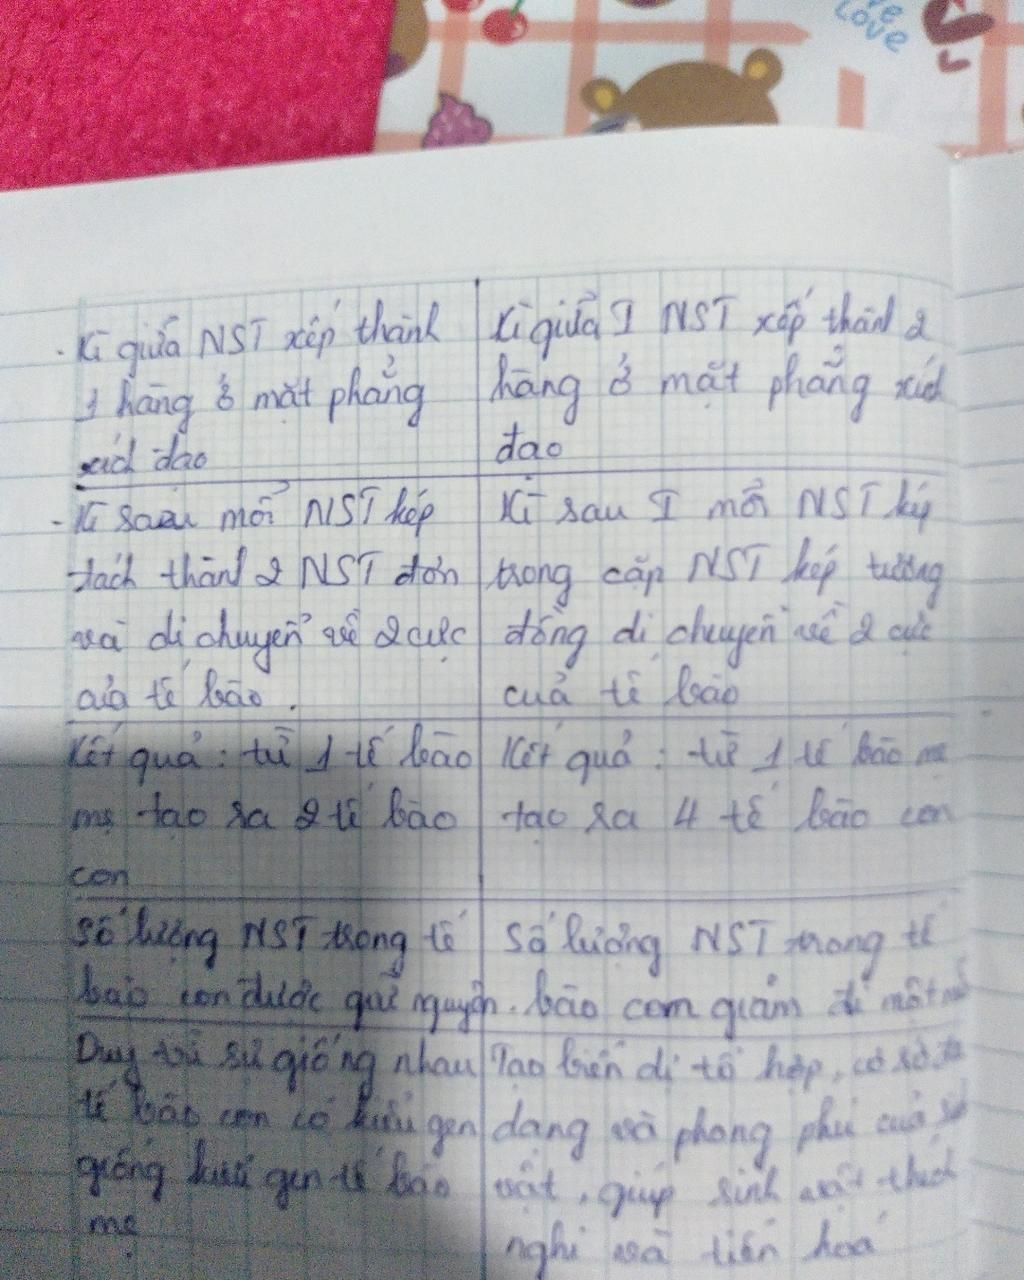 LOVE
- Kì giữa NST xếp thành
1 hàng ở mặt phẳng
xích đạo
Kì giữa I NST xếp thành 2
hàng ở mặt phẳng xích
đạo
- Kì sau mỗi NST kép
tách thành 2 NST đơn
và di chuyển về 2 cực
của tế bào.
Kì sau I mỗi NST kép
trong cặp NST kép tương
đồng di chuyển về 2 cực
của tế bào
Kết quả: từ 1 tế bào
mẹ tạo ra 2 tế bào
con
Kết quả: từ 1 tế bào mẹ
tạo ra 4 tế bào con
Số lượng NST trong tế
bào con được giữ nguyên.
Số lượng NST trong tế
bào con giảm đi một
Duy trì sự giống nhau
tế bào con có kiểu gen
giống kiểu gen tế bào
mẹ
Tạo biến dị tổ hợp, cơ sở
dạng và phong phú của
vật, giúp sinh vật thích
nghi và tiến hoá